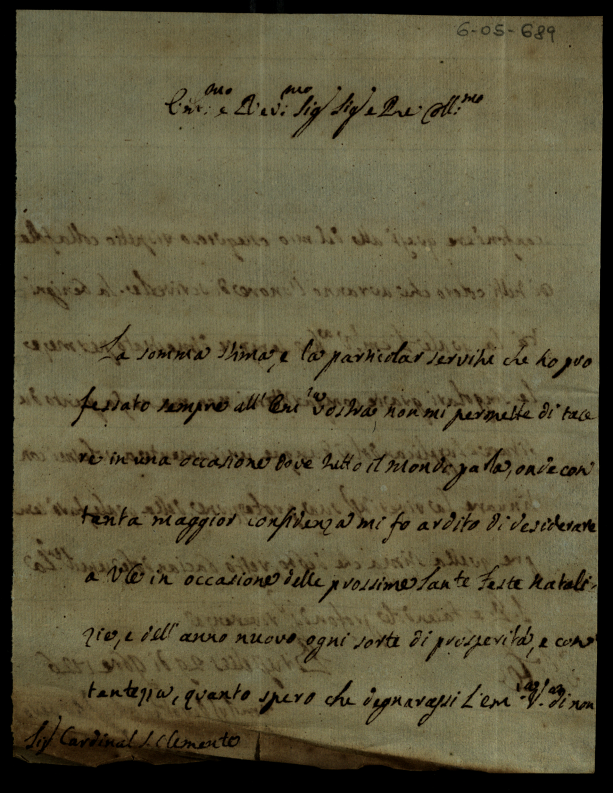 6-05-689
Em:mo e Rev:mo Sig.r Sig.r e Pne Coll:mo
La somma stima, e la particolar servitù che ho pro
fessato sempre all'Em.za Vostra, non mi permette di tace
re in una occasione dove tutto il mondo parla, onde con
tanta maggior confidenza mi fo ardito di desiderare
a VE in occasione delle prossime Sante Feste Natali-
zie, e dell'anno nuovo ogni sorte di prosperità, e con
tentezza, quanto spero che degnarassi l'Em.za V.ra di non
Sig.r Cardinal S. Clemente